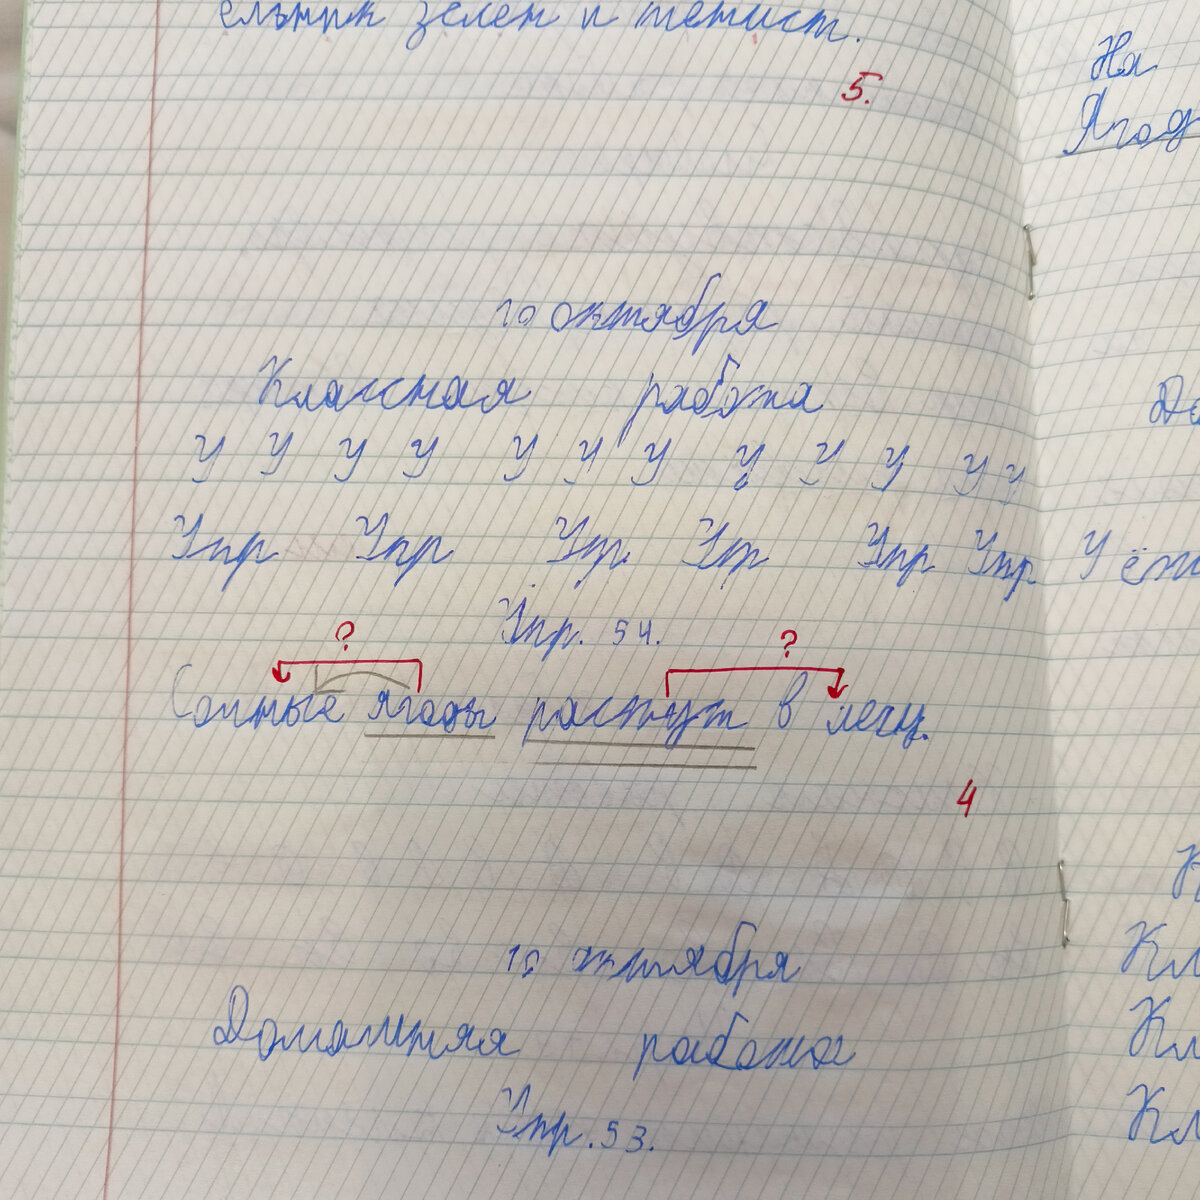 ельник зелен и тенист.
5.
10 октября
Классная работа
У У У У У У У У У У У У
Упр Упр Упр. Упр Упр Упр
Упр. 54.
? ?
Сочные ягоды растут в лесу.
4
10 октября
Домашняя работа
Упр. 53.
На
Ягод
До
У ёж
К
Кл
Кл
Кл